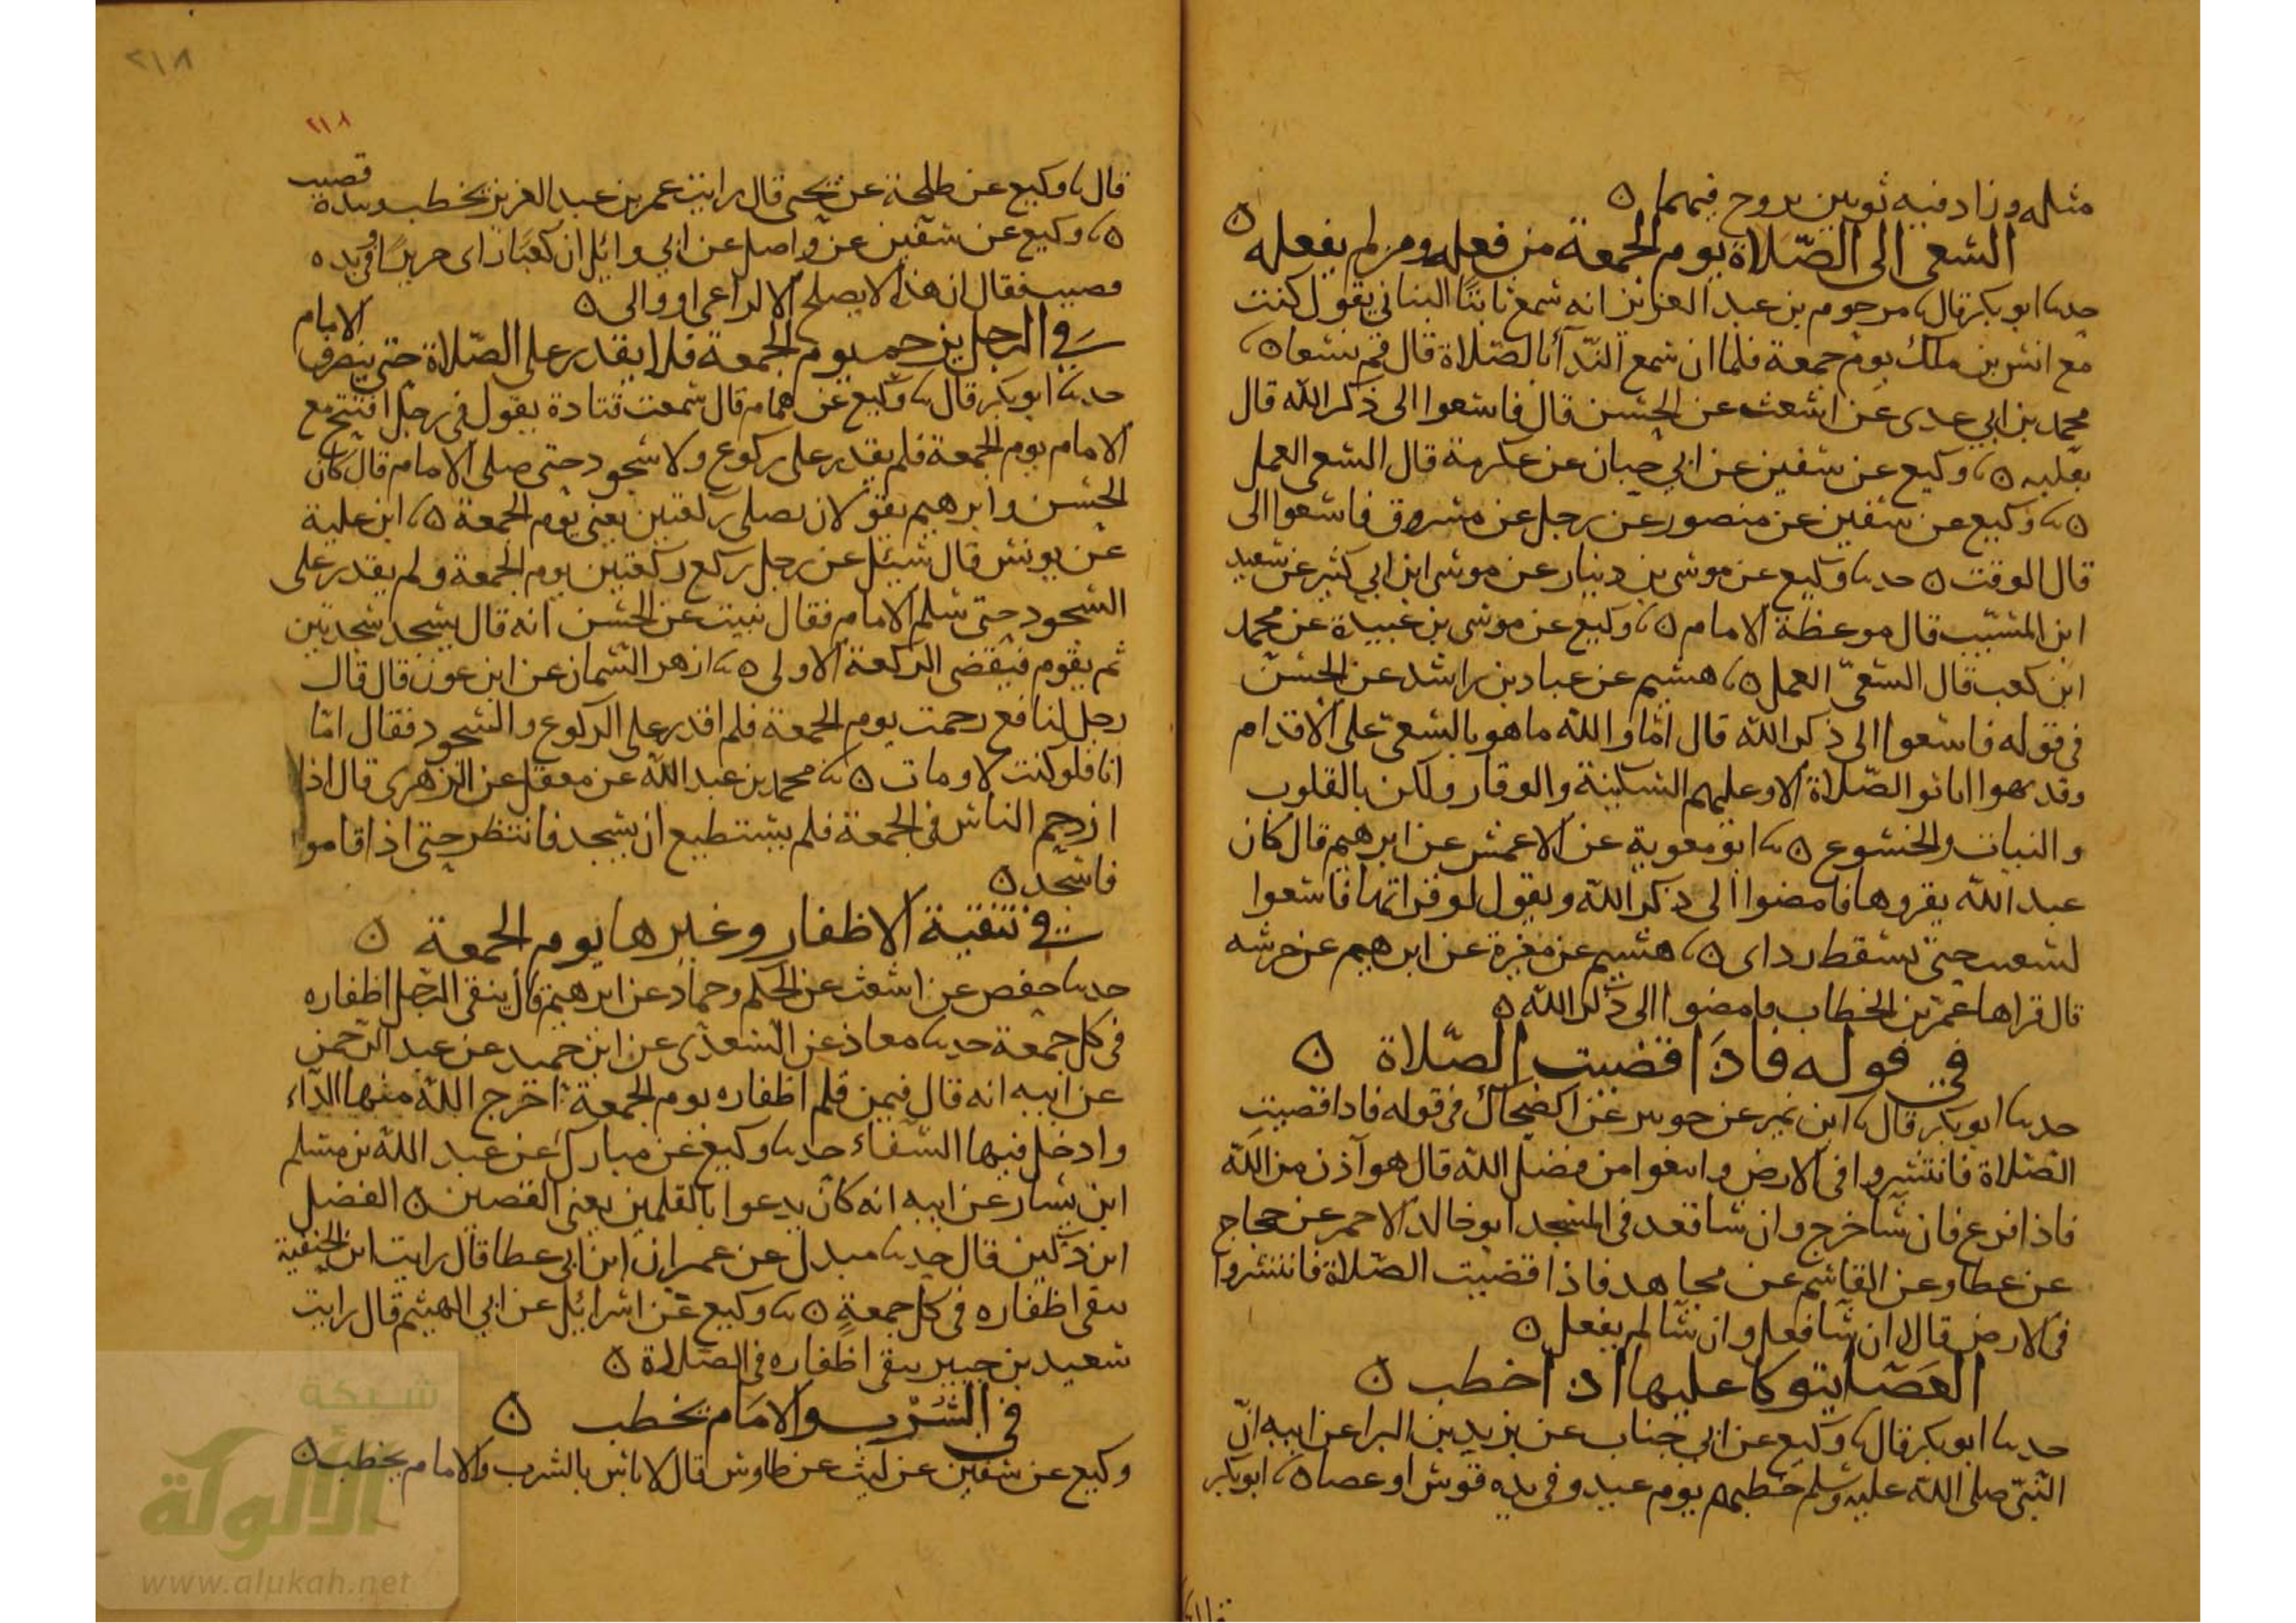 مثله وزاد فيه ثوبين يروح فيهما ه
السعى الى الصّلاة يوم الجمعة من فعله ومن لم يفعله ه
حدىا ابو بكر قال ىا مرحوم بن عبد العزيز انه سمع ثابتًا البناني يقول كنت
مع انس بن ملك يوم جمعة فلما ان سمع النّدآ بالصّلاة قال قم نسعا ه ىا
محمد بن ابي عدى عن اشعث عن الحسن قال فاسعوا الى ذكر الله قال
بقلبه ه ىا وكيع عن سفين عن ابي حيان عن عكرمة قال السعى العمل
ه ىا وكيع عن سفين عن منصور عن رجل عن مسروق فاسعوا الى
قال الوقت ه حدىا وكيع عن موسى بن دينار عن موسى ابن ابي كثير عن سعيد
ابن المسيّب قال موعظة الامام ه ىا وكيع عن موسى بن عبيدة عن محمد
ابن كعب قال السعىّ العمل ه ىا هشيم عن عباد بن راشد عن الحسن
في قوله فاسعوا الى ذكر الله قال امّا والله ما هو بالسعىّ على الاقدام
وقد نهوا ان ياتوا الصّلاة الا وعليهم السكينة والوقار ولكن بالقلوب
والنيات والخشوع ه ىا ابو معوية عن الاعمش عن ابرهيم قال كان
عبد الله يقروها فامضوا الى ذكر الله ويقول لو قراتها فاسعوا
لسعيت حتى يسقط رداى ه ىا هشيم عن مغيرة عن ابرهيم عن خرشه
قال قراها عمر بن الخطاب فامضوا الى ذكر الله ه
في قوله فاذَا قضيت الصّلاة ه
حدىا ابو بكر قال ىا ابن نمير عن جويبر عن الضحاك في قوله فاذا قضيت
الصّلاة فانتشروا في الارض وابتغوا من فضل الله قال هو آذن من الله
فاذا فرع فان شا خرج وان شا قعد في المسجد ابو خالد الاحمر عن حجاج
عن عطا وعن القاسم عن مجاهد فاذا قضيت الصّلاة فانتشروا
في الارض قالا ان شا فعل وان شا لم يفعل ه
العَصَا يتوكا عليها اذا خطب ه
حدىا ابو بكر قال ىا وكيع عن ابي جناب عن يزيد بن البرا عن ابيه انّ
النّبيّ صلى الله عليه وسلم خطبهم يوم عيد وفي يده قوس او عصا ه ىا ابو بكر
٢١٨
٢١٨
قال ىا وكيع عن طلحة عن يحيى قال رايت عمر بن عبد العزيز يخطب وبيده قصيب
ه ىا وكيع عن سفين عن واصل عن ابي وائل ان كعبًا راى جريرًا وفي يده
قصيب فقال ان هذا لا يصلح الا لراعى او والى ه
في الرجل يزحم يوم الجمعة فلا يقدر على الصّلاة حتى ينصرف الامام
حدىا ابو بكر قال ىا وكيع عن همام قال سمعت قتادة يقول في رجل افتتح مع
الامام يوم الجمعة فلم يقدر على ركوع ولا سجود حتى صلى الامام قال كان
الحسن وابرهيم يقولان يصلى ركعتين يعني يوم الجمعة ه ىا ابن علية
عن يونس قال سئل عن رجل ركع ركعتين يوم الجمعة ولم يقدر على
السجود حتى سلم الامام فقال نبيت عن الحسن انه قال يسجد سجدتين
ثم يقوم فيقضى الركعة الاولى ه ىا ازهر السمان عن ابن عون قال قال
رجل لنافع زحمت يوم الجمعة فلم اقدر على الركوع والسجود فقال امّا
انا فلو كنت لاومات ه ىا محمد بن عبد الله عن معقل عن الزهرى قال اذا
ازدحم الناس في الجمعة فلم يستطيع ان يسجد فانتظر حتى اذا قاموا
فاسجد ه
في تنقية الاظفار وغيرها يوم الجمعة ه
حدىا حفص عن اشعث عن الحكم وحماد عن ابرهيم قال ينقى الرّجل اظفاره
في كل جمعة حدىا معاذ عن المسعدىّ عن ابن حميد عن عبد الرحمن
عن ابيه انه قال فيمن قلم اظفاره يوم الجمعة اخرج الله منها الدآء
وادخل فيها الشفاء حدىا وكيع عن مبارك عن عبد الله بن مسلم
ابن يسار عن ابيه انه كان يدعوا بالقلمين يعني القصين ه الفضل
ابن دكين قال حدىا مبدل عن عمران ابن ابي عطا قال رايت ابن الحنفية
ينقى اظفاره في كل جمعةٍ ه ىا وكيع عن اسرائيل عن ابي الهيثم قال رايت
سعيد بن جبير ينقى اظفاره في الصّلاة ه
في الشُرْب والامَام يخطب ه
وكيع عن سفين عن ليث عن طاوس قال لا باس بالشرب والامام يخطب ه
شبكة
الألوكة
www.alukah.net